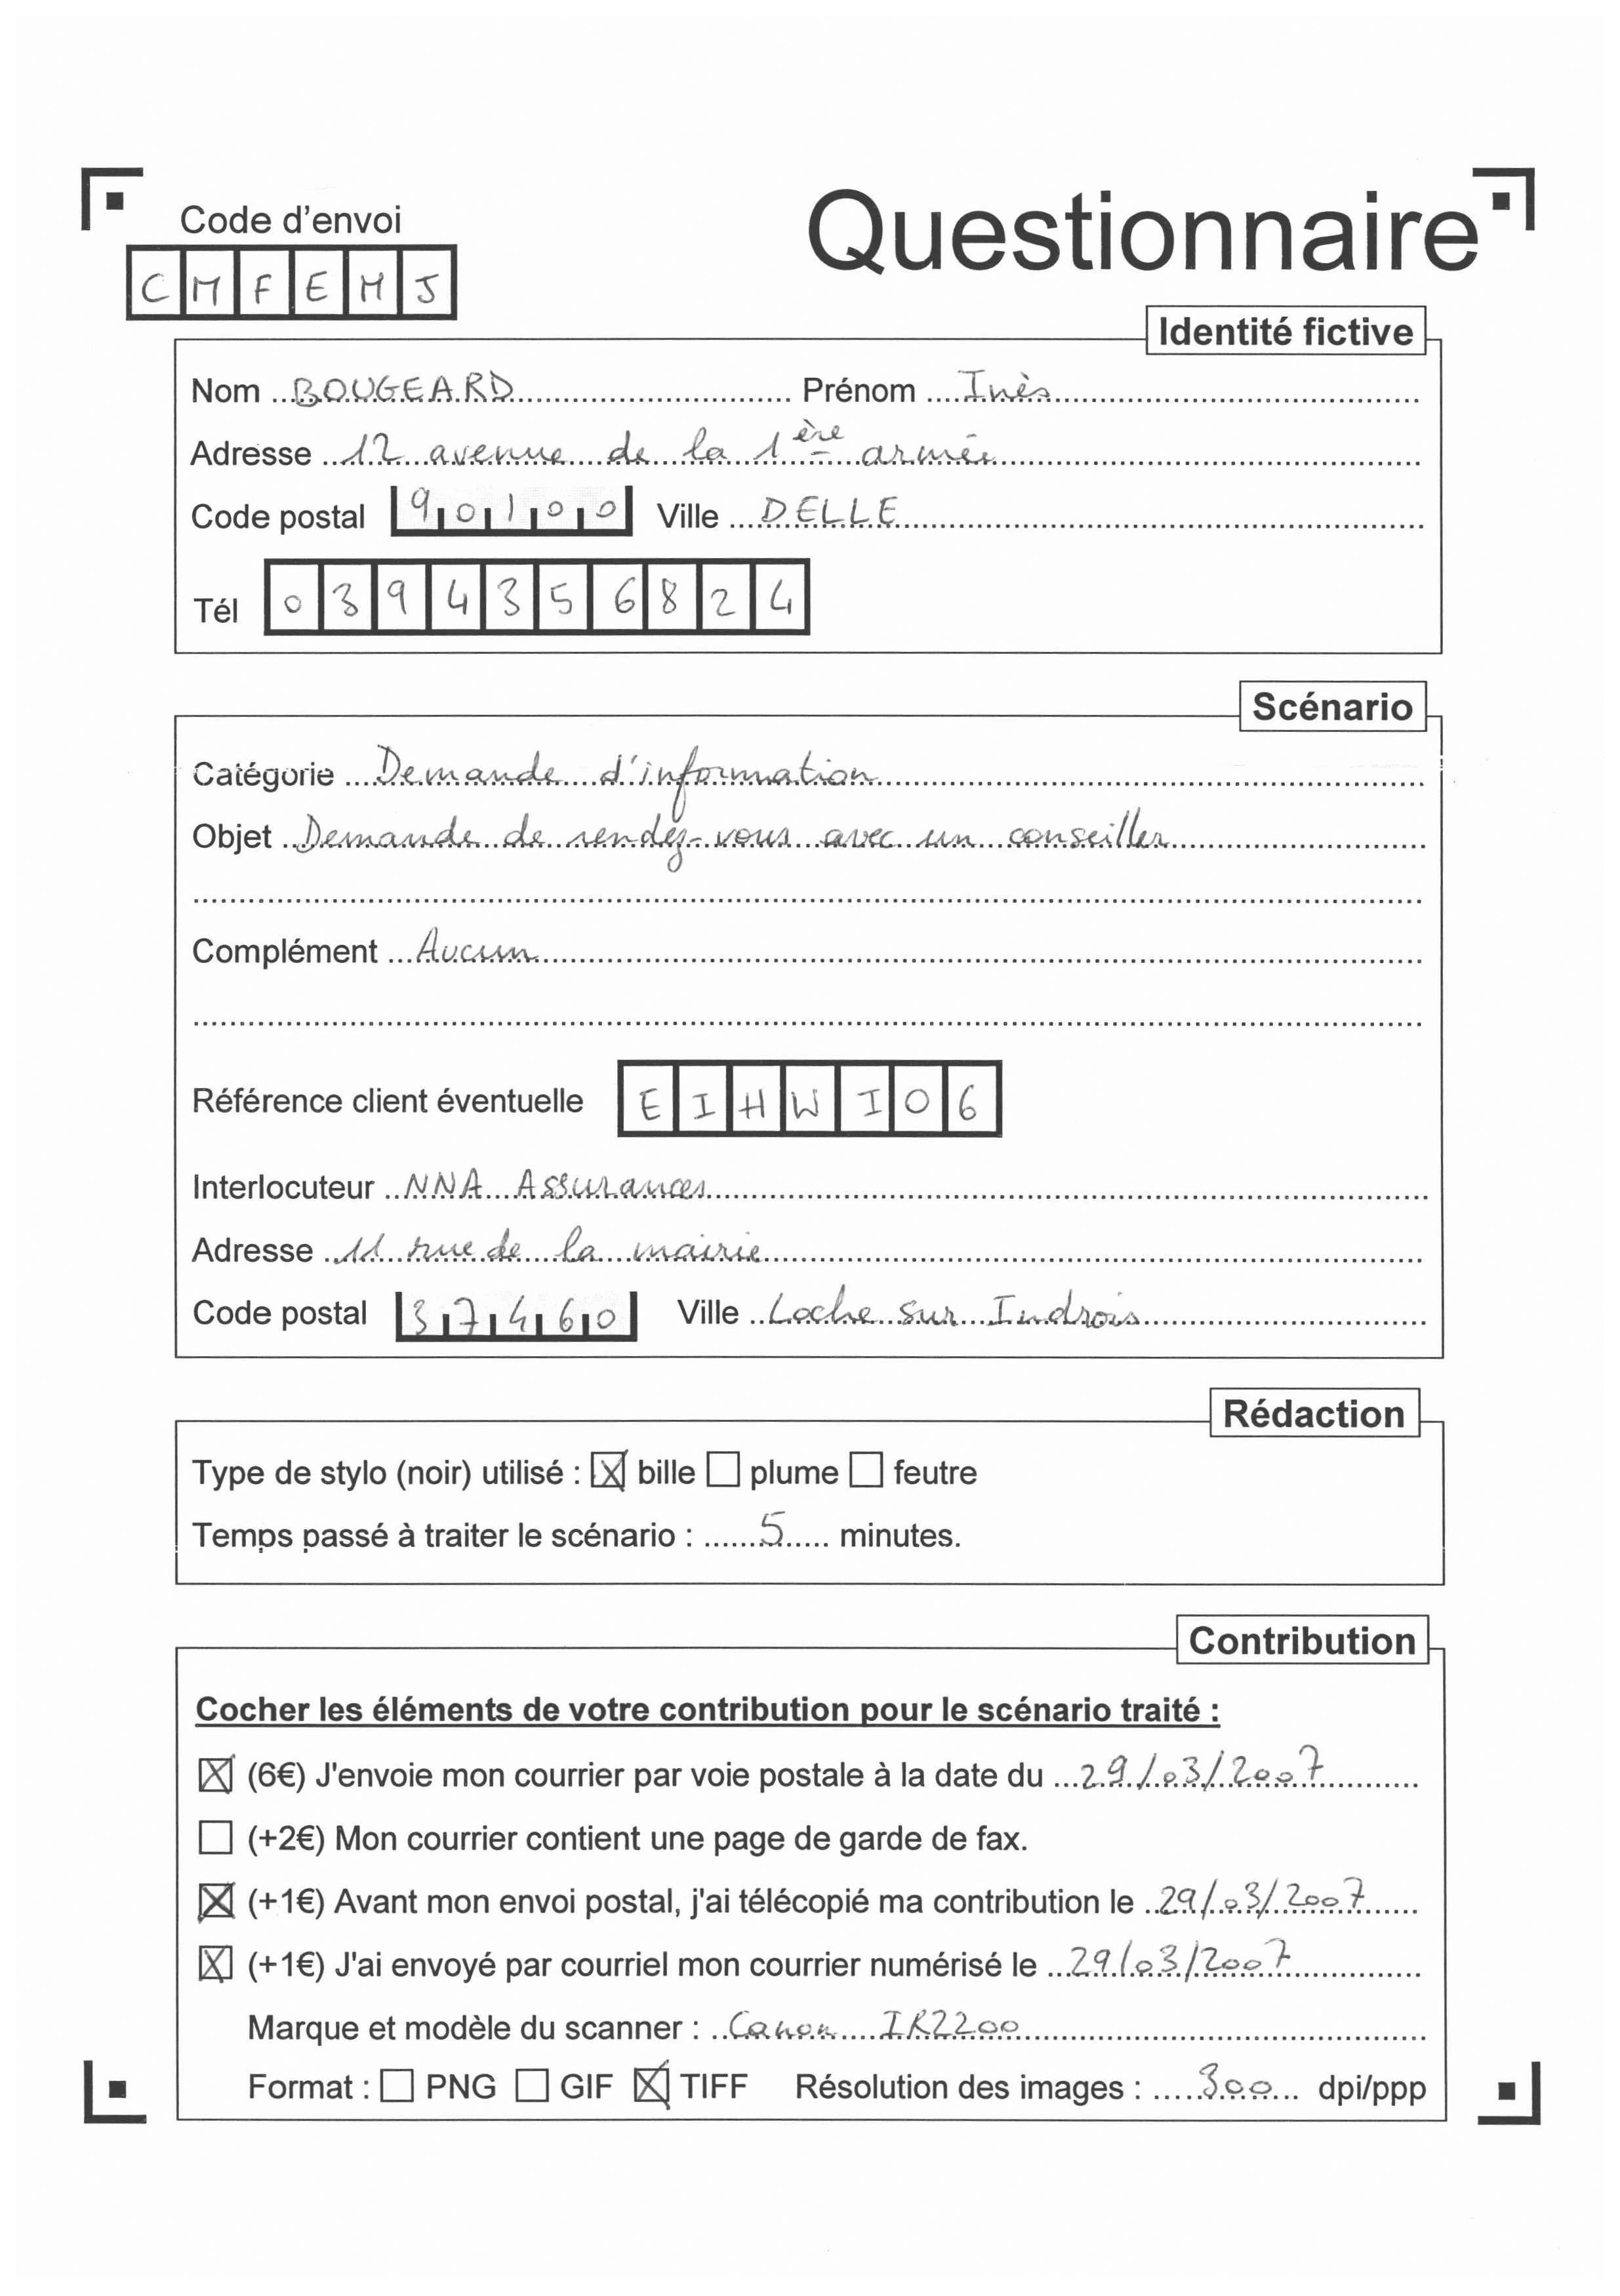 Code d'envoi
Questionnaire
C M F E M J
Identité fictive
Nom BOUGEARD Prénom Inès
Adresse 12 avenue de la 1ère armée
Code postal 90100 Ville DELLE
Tél 0394356824
Scénario
Catégorie Demande d'information
Objet Demande de rendez-vous avec un conseiller
Complément Aucun
Référence client éventuelle E I H W I 0 6
Interlocuteur NNA Assurances
Adresse 11 rue de la mairie
Code postal 37460 Ville Loche sur Indrois
Rédaction
Type de stylo (noir) utilisé : ☒ bille ☐ plume ☐ feutre
Temps passé à traiter le scénario : 5 minutes.
Contribution
Cocher les éléments de votre contribution pour le scénario traité :
☒ (6€) J'envoie mon courrier par voie postale à la date du 29/03/2007
☐ (+2€) Mon courrier contient une page de garde de fax.
☒ (+1€) Avant mon envoi postal, j'ai télécopié ma contribution le 29/03/2007
☒ (+1€) J'ai envoyé par courriel mon courrier numérisé le 29/03/2007
Marque et modèle du scanner : Canon IR2200
Format : ☐ PNG ☐ GIF ☒ TIFF Résolution des images : 300 dpi/ppp